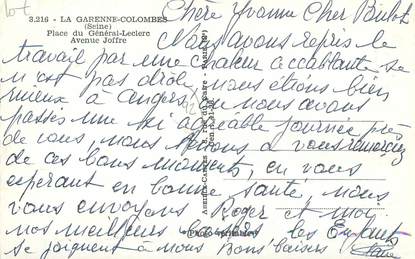 lot
3.216 - LA GARENNE-COLOMBES
(Seine)
Place du Général-Leclerc
Avenue Joffre
Chère Yvonne Cher
Nous avons repris le
travail par une chaleur accablante se
n'est pas drole, nous étions bien
mieux à Angers, ou nous avons
passés une si agréable journée près
de vous, nous tenons a vous remercier
de ces bons moments, en vous
esperant en bonne santé, nous
vous envoyons Roger et moi
nos meilleurs baisers les Enfants
se joignent à nous Bons baisers